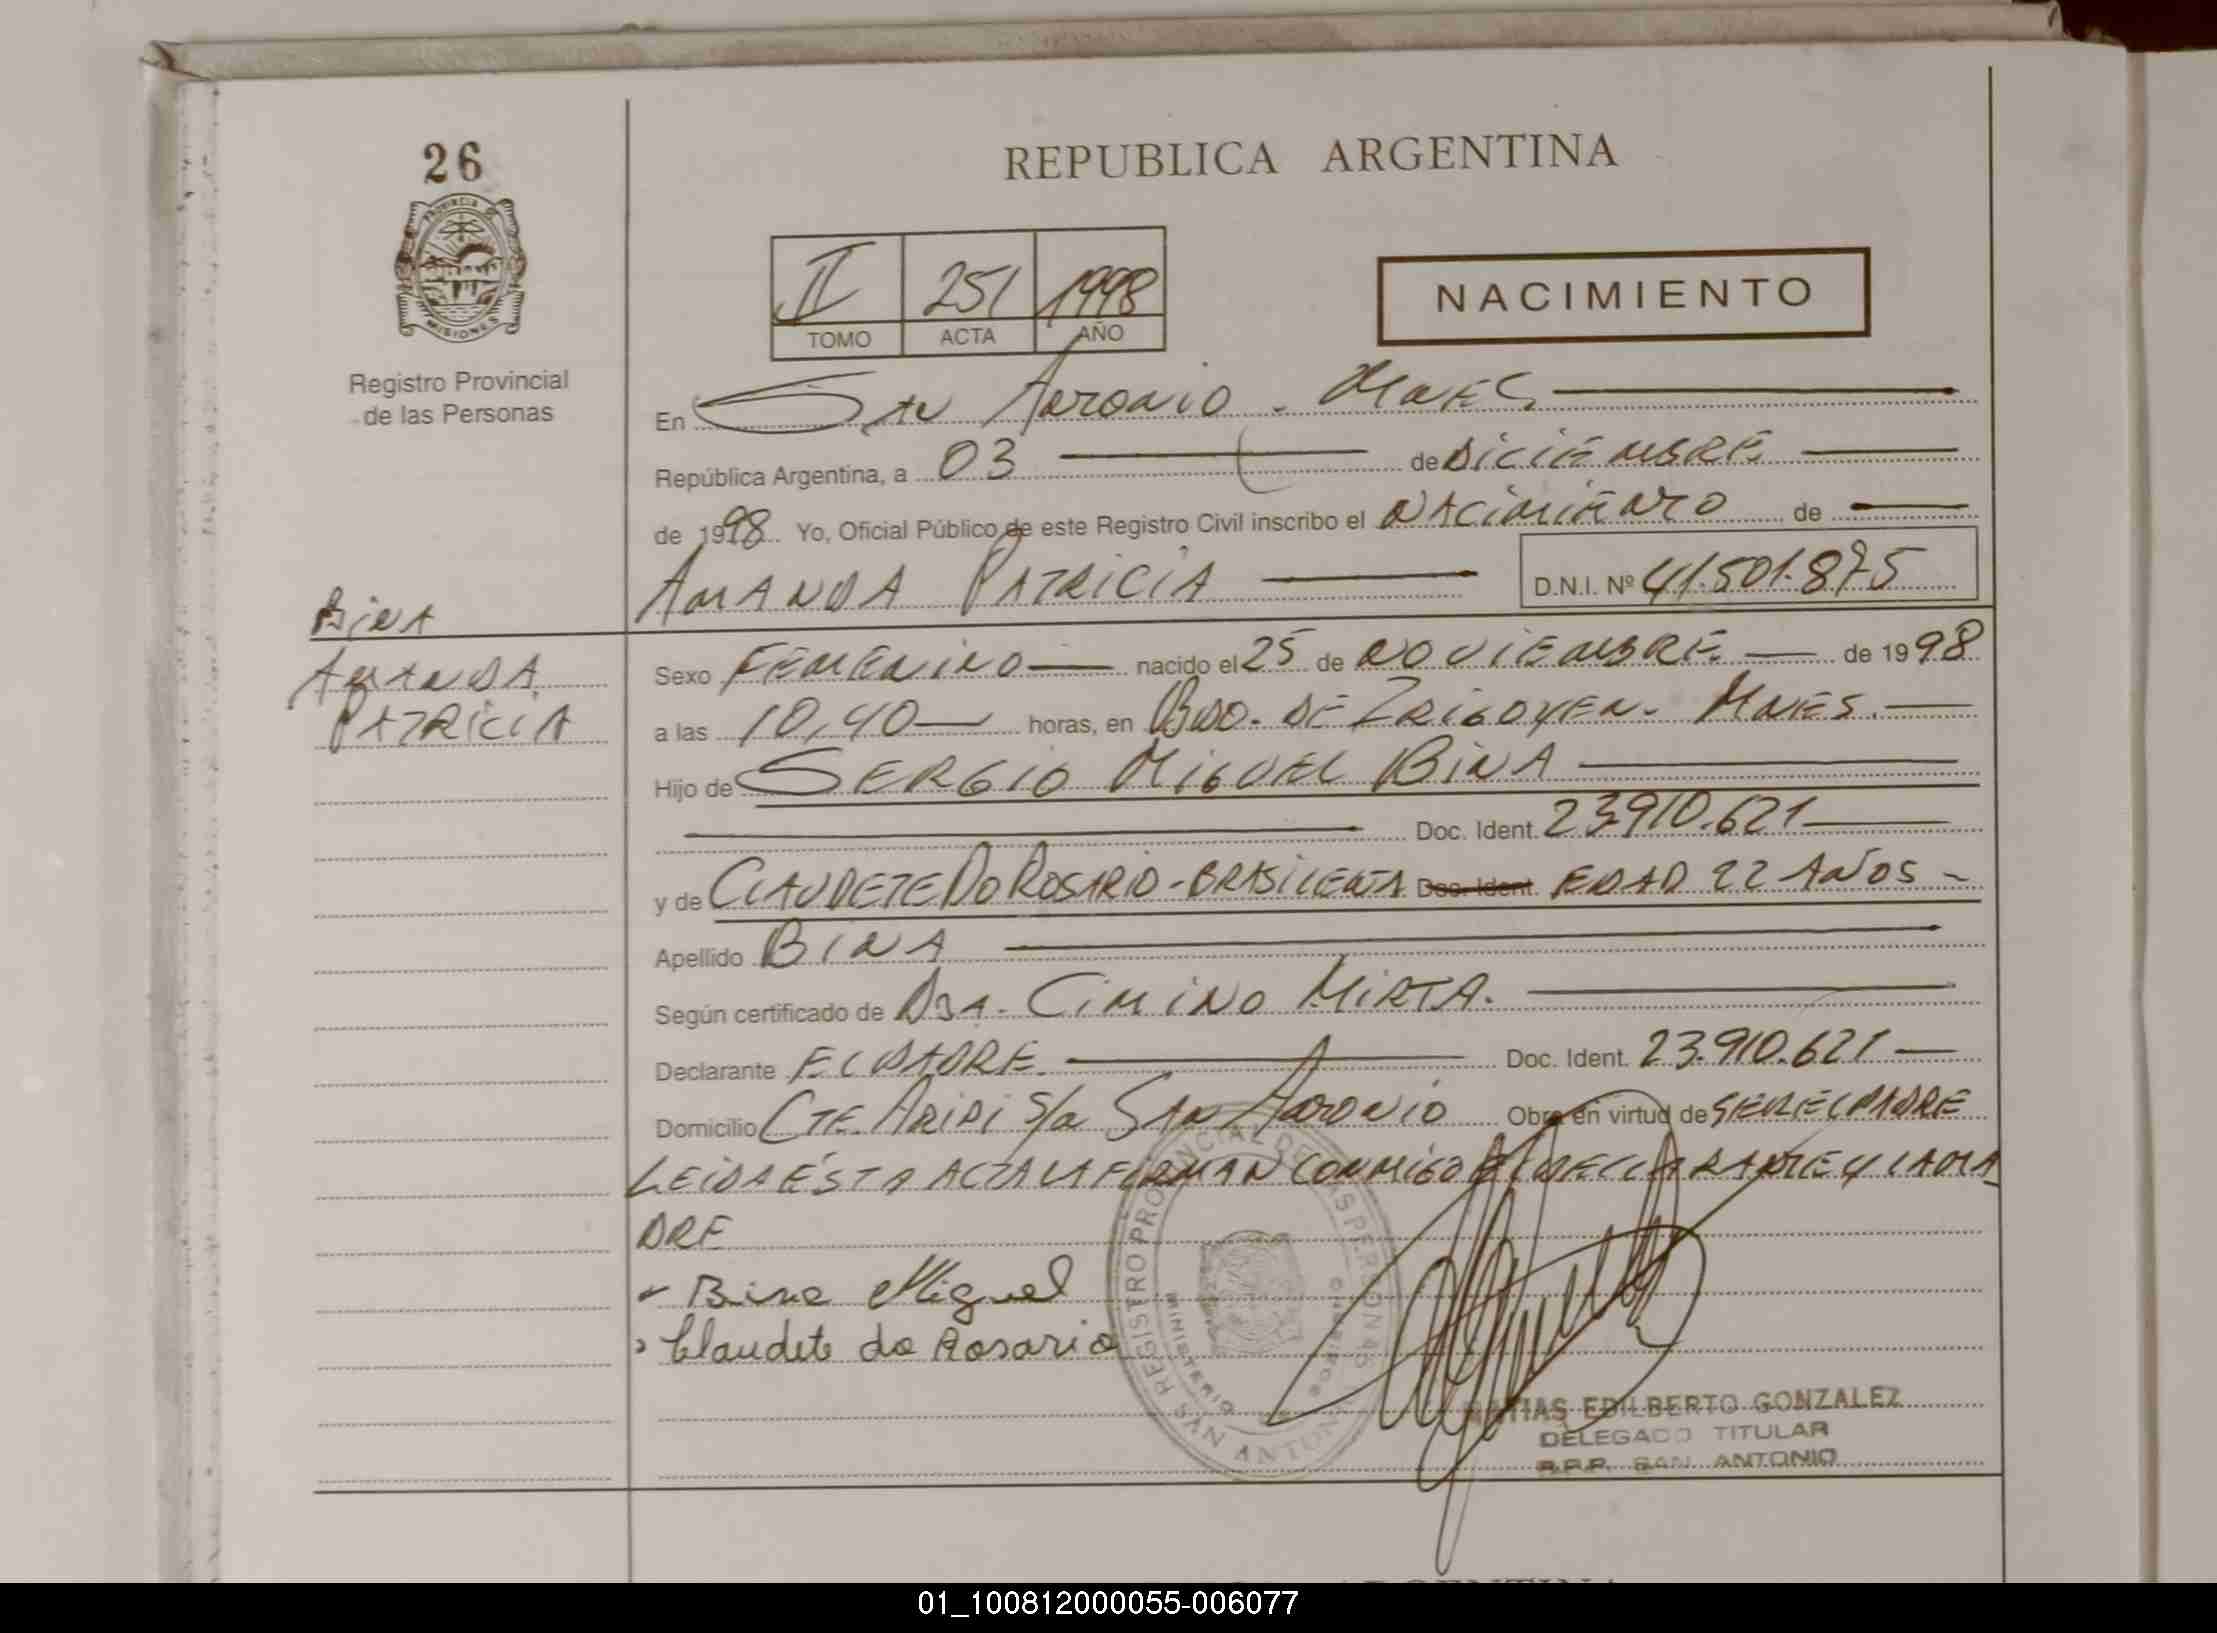 26
PROVINCIA DE
MISIONES
Registro Provincial
de las Personas
REPUBLICA ARGENTINA
II 251 1998
TOMO ACTA AÑO
NACIMIENTO
En San Antonio - Mnes
República Argentina, a 03 de DICIEMBRE
de 1998 Yo, Oficial Público de este Registro Civil inscribo el NACIMIENTO de
AMANDA PATRICIA D.N.I. Nº 41.501.875
BINA
AMANDA
PATRICIA
Sexo FEMENINO nacido el 25 de NOVIEMBRE de 1998
a las 10,40 horas, en BDO. DE IRIGOYEN - MNES.
Hijo de SERGIO MIGUEL BINA
Doc. Ident. 23.910.621
y de CLAUDETE DO ROSARIO - BRASILEÑA Doc. Ident. EDAD 22 AÑOS -
Apellido BINA
Según certificado de DRA. CIMINO MIRTA.
Declarante EL PADRE Doc. Ident. 23.910.621
Domicilio CTE. S/n SAN ANTONIO Obra en virtud de SER EL PADRE
LEIDA ÉSTA ACTA LA FIRMAN CONMIGO EL DECLARANTE Y LA MA
DRE
Bina Miguel
Claudete do Rosario
REGISTRO PROVINCIAL DE LAS PERSONAS
MINISTERIO GOBIERNO
SAN ANTONIO
MATIAS EDILBERTO GONZALEZ
DELEGADO TITULAR
R.P.P. SAN ANTONIO
01_100812000055-006077